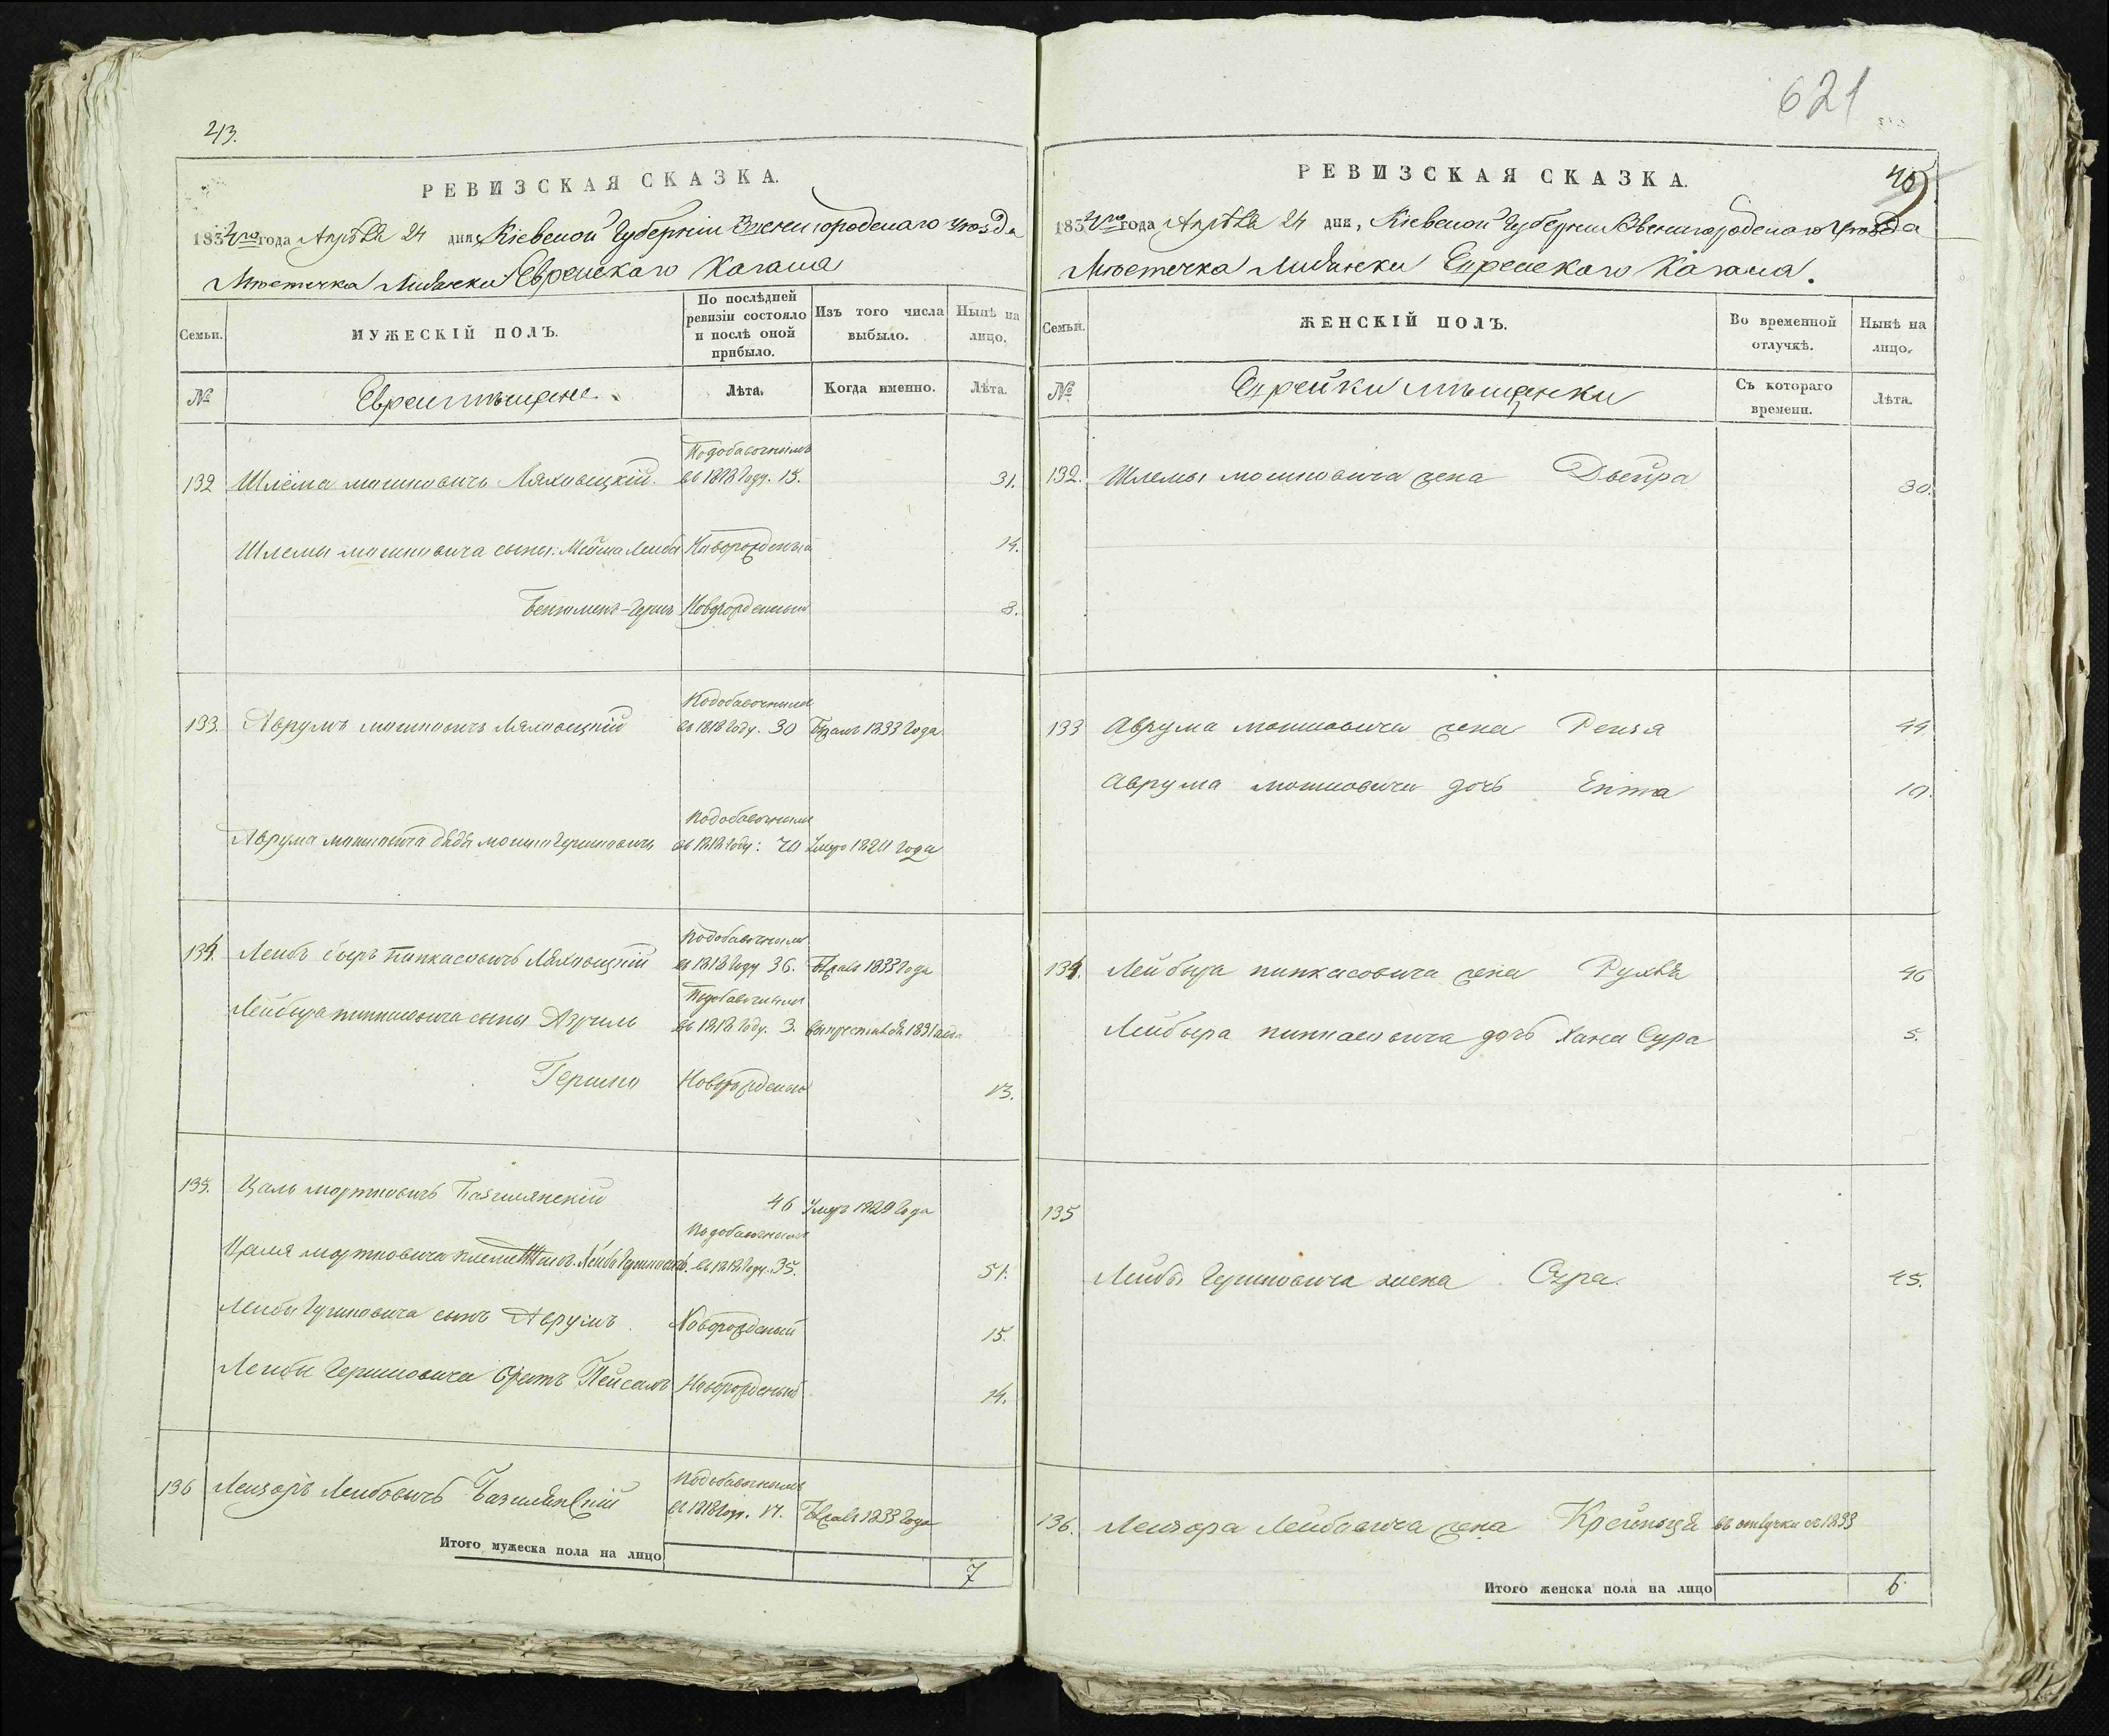 213.
РЕВИЗСКАЯ СКАЗКА.
1834го года Апрѣля 24 дня, Кіевской Губерніи Звенигородскаго уѣзда
Мѣстечка Лисянки Еврейскаго Кагала
Семьи.
МУЖЕСКІЙ ПОЛЪ.
По послѣдней ревизіи состояло и послѣ оной прибыло.
Изъ того числа выбыло.
Нынѣ на лицо.
№
Евреи мѣщане.
Лѣта.
Когда именно.
Лѣта.
Подобавочнымъ
132 Шлёма мошковичъ Ляховецкій. въ 1818 году. 15. 31.
Шлемы мошковича сыны: Лейба Новорожденый 14.
Новорожденный 8.
Подобавочнымъ
133. Аврумъ мошковичъ Ляховецкій въ 1818 году. 30 Бѣжалъ 1833 года.
Подобавочнымъ
Аврума мошковича дядя мошко Гершковичъ въ 1818 году: 70 Умеръ 1820 года
Подобавочнымъ
134. Лейбъ беръ Пинкасовичъ Ляховецкій въ 1818 году 36. Бѣжалъ 1833 года
Подобавочнымъ
Лейбера пинкасовича сыны Азриль въ 1818 году. 3. 1831 года
Гершко Новорожденый 13.
135. Цаль мортковичъ Базилянскій 46 Умеръ 1829 года
Подобавочнымъ
Цаля мортковича племянникъ Лейба Гершковичъ. въ 1818 году. 35. 51.
Лейбы Гершковича сынъ Аврумъ Новорожденый 15.
Лейбы Гершковича братъ Пейсахъ Новорожденый 14.
Подобавочнымъ
136 Лейзоръ Лейбовичъ Базилянскій въ 1818 году. 17. Бѣжалъ 1833 года
Итого мужеска пола на лицо 7
621
РЕВИЗСКАЯ СКАЗКА.
1834го года Апрѣля 24 дня, Кіевской Губерніи Звенигородскаго уѣзда
Мѣстечка Лисянки Еврейскаго Кагала.
Семьи.
ЖЕНСКІЙ ПОЛЪ.
Во временной отлучкѣ.
Нынѣ на лицо.
№
Еврейки мѣщанки
Съ котораго времени.
Лѣта.
132. Шлемы мошковича жена Двейра 30.
133 Аврума мошковича жена Рейзя 44
Аврума мошковича дочь Ента 10.
134. Лейбера пинкасовича жена Рухля 46
Лейбера пинкасовича дочь Хана Сура 5.
135
Лейбы Гершковича жена Сура. 45.
136. Лейзора Лейбовича жена Крейнця въ отлучки съ 1833
Итого женска пола на лицо 6